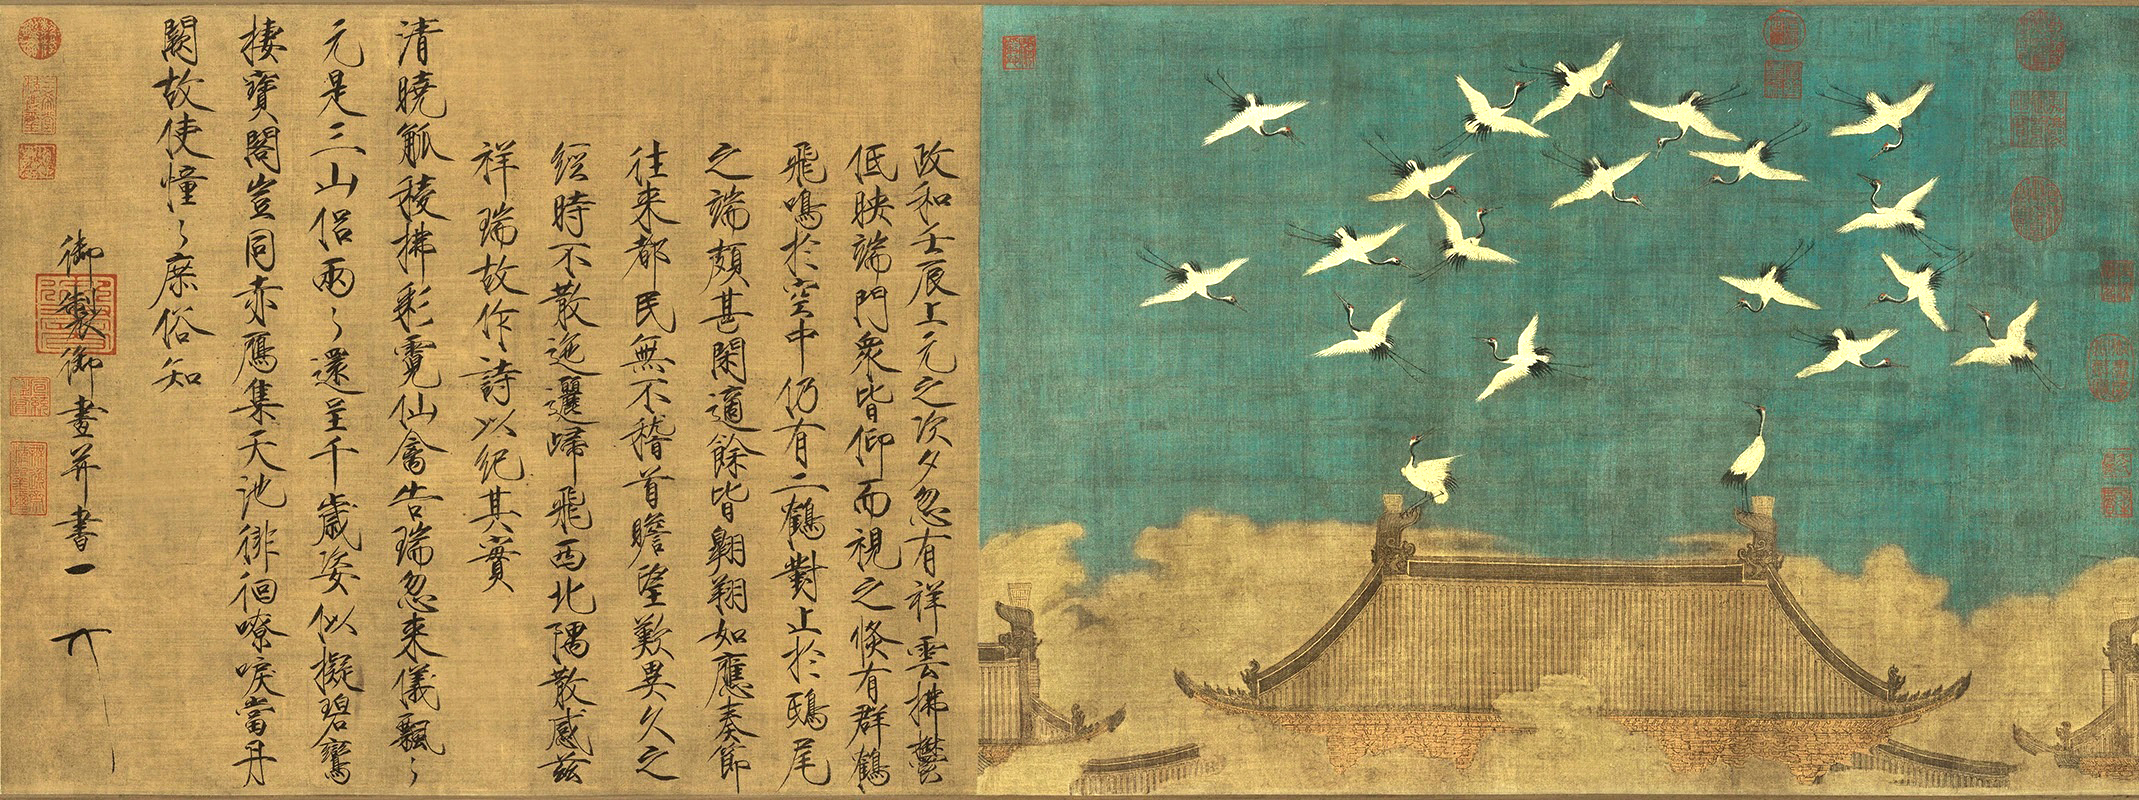 政和壬辰上元之次夕忽有祥雲拂鬱
低映端門衆皆仰而視之倐有群鶴
飛鳴於空中仍有二鶴對止於鴟尾
之端頗甚閑適餘皆翱翔如應奏節
往来都民無不稽首瞻望歎異久之
經時不散迤邐歸飛西北隅散感兹
祥瑞故作詩以紀其實
清曉觚稜拂彩霓仙禽告瑞忽来儀飄々
元是三山侣兩々還呈千歲姿似擬碧鸞
棲寶閣豈同赤鴈集天池徘徊嘹唳當丹
闕故使憧々庶俗知
御製御畫并書